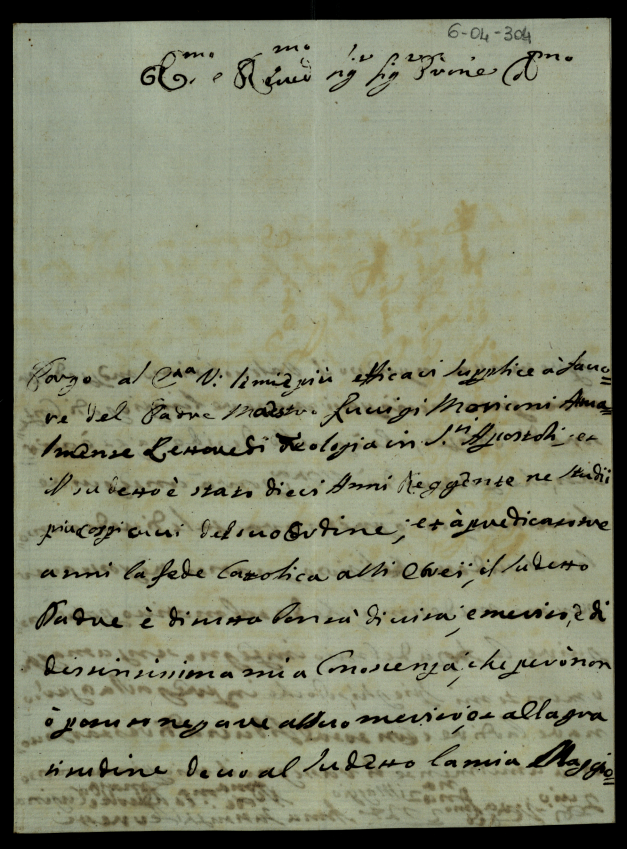 6-04-304
Em.mo e Rev.mo Sig.r Sig.r P.rone
Porgo al E.ma V: le mie più efficaci supplice à favo=
re del Padre Maestro Luuigi Marioni Ama=
Lettore di Teologia in S.ti Apostoli; et
il sudetto è stato dieci Anni Reggente ne studii
più cospicui del suo Ordine, et à predicato tre
anni la fede Catolica alli Ebrei, il sudetto
Padre è di tutta bontà di vita, e merito, è di
destintissima mia Conoscenza, che però non
ò potuto negare al suo merito, et alla gra
titudine devo al sudetto la mia Maggio=